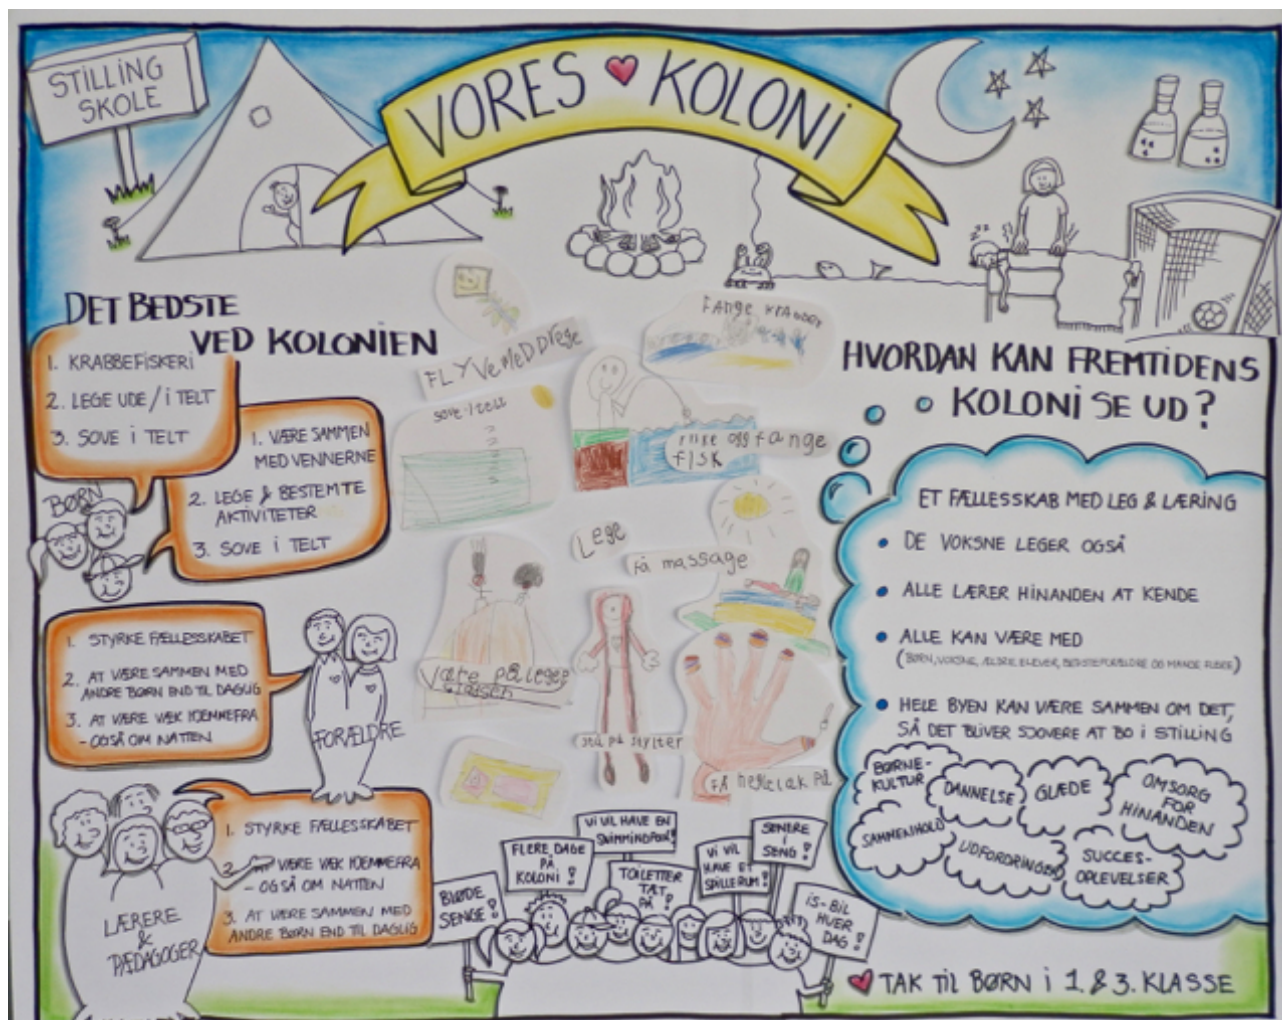 STILLING
SKOLE
VORES KOLONI
DET BEDSTE
VED KOLONIEN
1. KRABBEFISKERI
2. LEGE UDE/I TELT
3. SOVE I TELT
1. VÆRE SAMMEN
MED VENNERNE
2. LEGE & BESTEMTE
AKTIVITETER
3. SOVE I TELT
BØRN
1. STYRKE FÆLLESSKABET
2. AT VÆRE SAMMEN MED
ANDRE BØRN END TIL DAGLIG
3. AT VÆRE VÆK HJEMMEFRA
- OGSÅ OM NATTEN
FORÆLDRE
1. STYRKE FÆLLESSKABET
2. VÆRE VÆK HJEMMEFRA
- OGSÅ OM NATTEN
3. AT VÆRE SAMMEN MED
ANDRE BØRN END TIL DAGLIG
LÆRERE
&
PÆDAGOGER
FLYVE MED Drage
FANGE KRABBER
sove i telt
fange
fisk
Lege
Få massage
Være på legep
stå på stylter
FÅ neglelak på
BLØDE
SENGE!
FLERE DAGE
PÅ
KOLONI!
VI VIL HAVE EN
SWIMMINGPOOL!
TOILETTER
TÆT
PÅ!
VI VIL
HAVE ET
SPILLERUM!
SENERE
I SENG!
IS-BIL
HVER
DAG!
HVORDAN KAN FREMTIDENS
KOLONI SE UD?
ET FÆLLESSKAB MED LEG & LÆRING
• DE VOKSNE LEGER OGSÅ
• ALLE LÆRER HINANDEN AT KENDE
• ALLE KAN VÆRE MED
(BØRN, VOKSNE, ÆLDRE ELEVER, BEDSTEFORÆLDRE OG MANGE FLERE)
• HELE BYEN KAN VÆRE SAMMEN OM DET,
SÅ DET BLIVER SJOVERE AT BO I STILLING
BØRNE-
KULTUR
DANNELSE
GLÆDE
OMSORG
FOR
HINANDEN
SAMMENHOLD
UDFORDRINGER
SUCCES-
OPLEVELSER
TAK TIL BØRN I 1. & 3. KLASSE